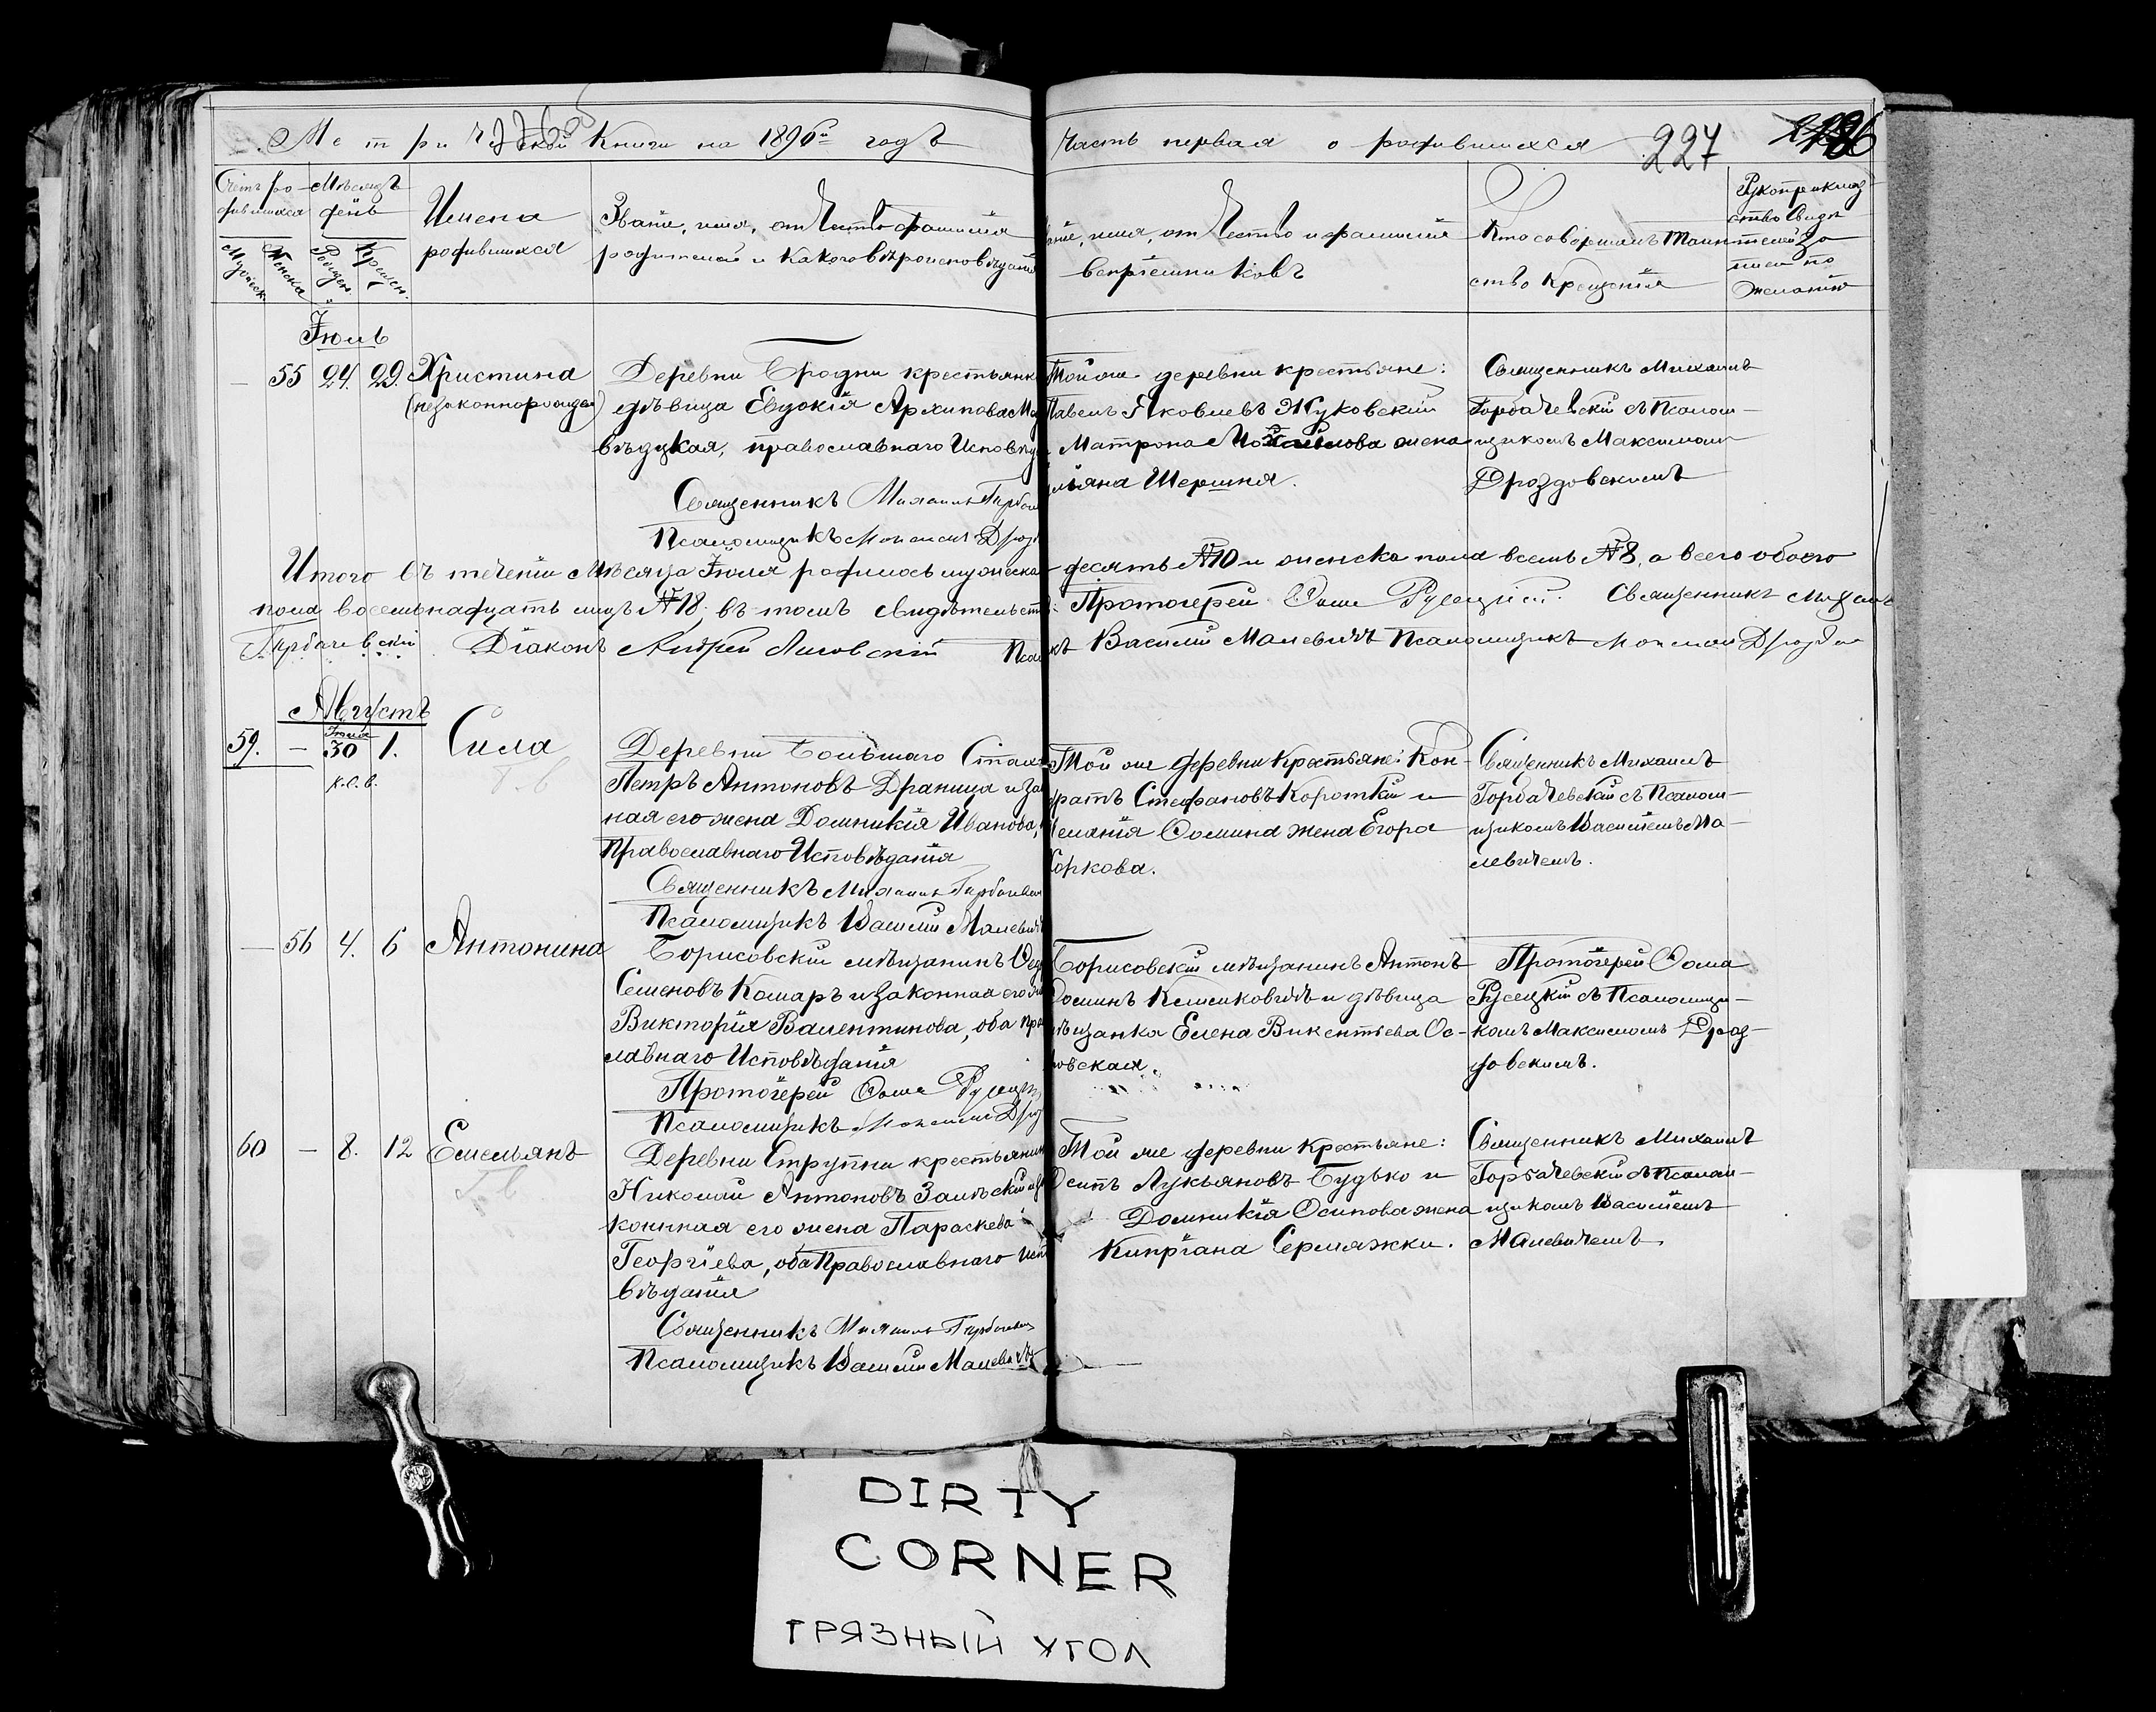 Метрической Книги на 1896й годъ
Часть первая о родившихся 227
Счетъ родившихся
Мѣсяцъ день
Имена родившихся
Званіе, имя, отчество фамилія
родителей и какого вѣроисповѣданія
Званіе, имя, отчество и фамилія
воспріемниковъ
Кто совершалъ таинство
крещенія
Рукоприкладство свидѣтелей
записи по
желанію
Мужеск. Женска Рожден. Крещен.
Іюль
— 55 24. 29. Христина
(незаконнорожден)
Деревни Бродни крестьянка
дѣвица Евдокія Архипова
вѣдцкая, православнаго Исповѣд
Священникъ Михаилъ Горбаче
Псаломщикъ Максимъ Дрозд
Той же деревни крестьяне:
Павелъ Яковлевъ Жуковскій
Матрона жена
Шершня.
Священникъ Михаилъ
Горбачевскій съ Псалом-
щикомъ Максимомъ
Дроздовскимъ
Итого въ теченіи мѣсяца Іюля родилось мужеска десять №10 и женска пола восемь №8, а всего обоего
пола восемьнадцать лицъ №18. въ томъ свидѣтельств: Протоіерей Ѳома Русецкій. Священникъ Михаилъ
Горбачевскій Діаконъ Андрей Лисовскій Псал къ Василій Малевичъ Псаломщикъ Максимъ Дроздов
Августъ
59. — Іюля 30 1. Сила
к.с.в.
Деревни Большаго Стах
Петръ Антоновъ Драница и зак
ная его жена Домникія Иванова,
Православнаго Исповѣданія
Священникъ Михаилъ Горбачевск
Псаломщикъ Василій Малевичъ
Той же деревни крестьяне: Кон-
дратъ Стефановъ Короткій и
Меланія Ѳомина жена Егора
Горкова.
Священникъ Михаилъ
Горбачевскій съ Псалом-
щикомъ Василіемъ Ма-
левичемъ.
— 56 4. 6 Антонина
Борисовскій мѣщанинъ
Семеновъ Комаръ и законная его ж
Викторія Валентинова, оба пра
лавнаго Исповѣданія
Протоіерей Ѳома Русецк
Псаломщикъ Максимъ Дрозд
Борисовскій мѣщанинъ Антонъ
Ѳоминъ Климковичъ и дѣвица
мѣщанка Елена Викентьева Ос-
овская.
Протоіерей Ѳома
Русецкій съ Псаломщи-
комъ Максимомъ Дроз-
довскимъ.
60 — 8. 12 Емельянъ
Деревни Струпни крестьянин
Николай Антоновъ Залѣскій и за
конная его жена Параскева
Георгіева, оба Православнаго Исп
вѣданія
Священникъ Михаилъ Горбачевск
Псаломщикъ Василій Малевичъ
Той же деревни крестьяне:
Осипъ Лукьяновъ Будько и
Домникія Осипова жена
Кипріана Сермяжки.
Священникъ Михаилъ
Горбачевскій съ Псалом-
щикомъ Василіемъ
Малевичемъ.
DIRTY
CORNER
ГРЯЗНЫЙ УГОЛ